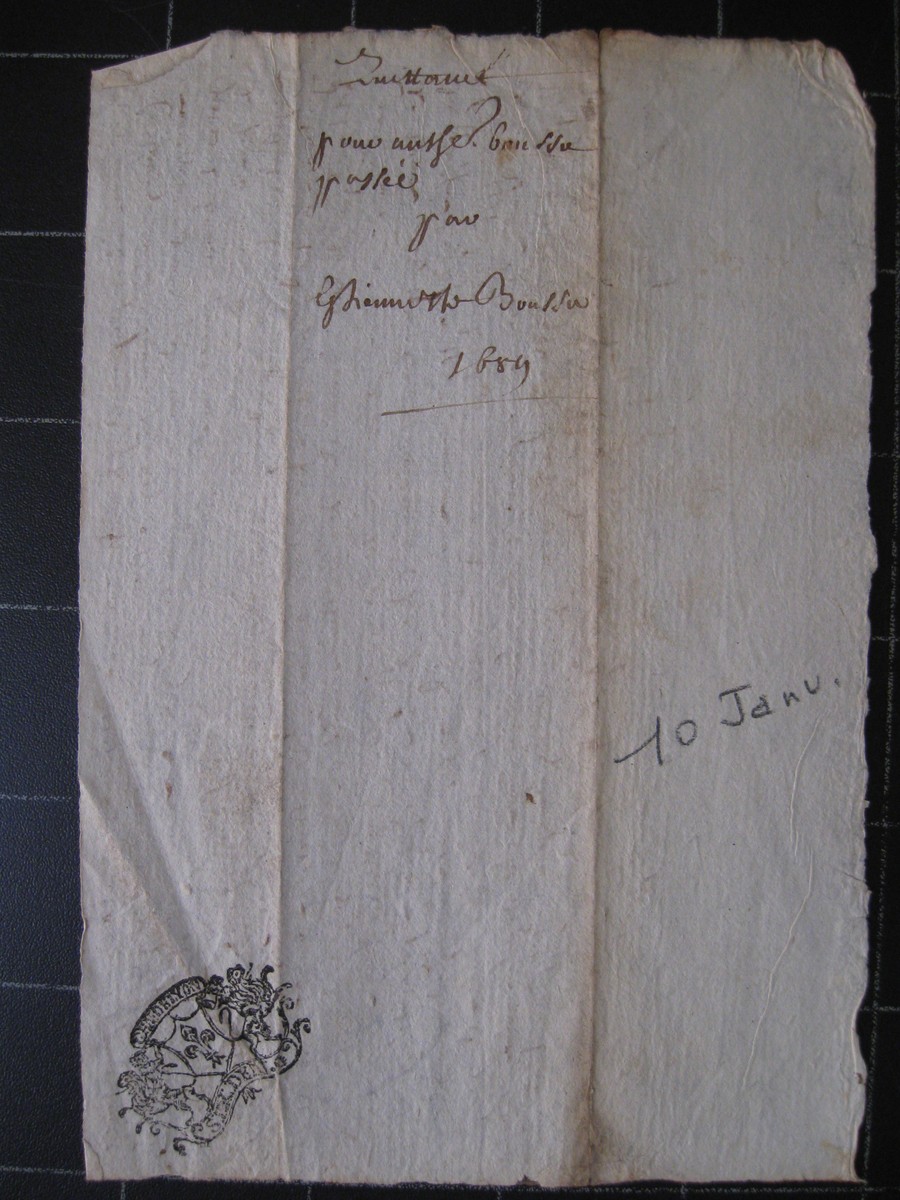 Quittance
pour anthe. bousse
passée
par
Estiennette Bousse
1689
10 Janv.